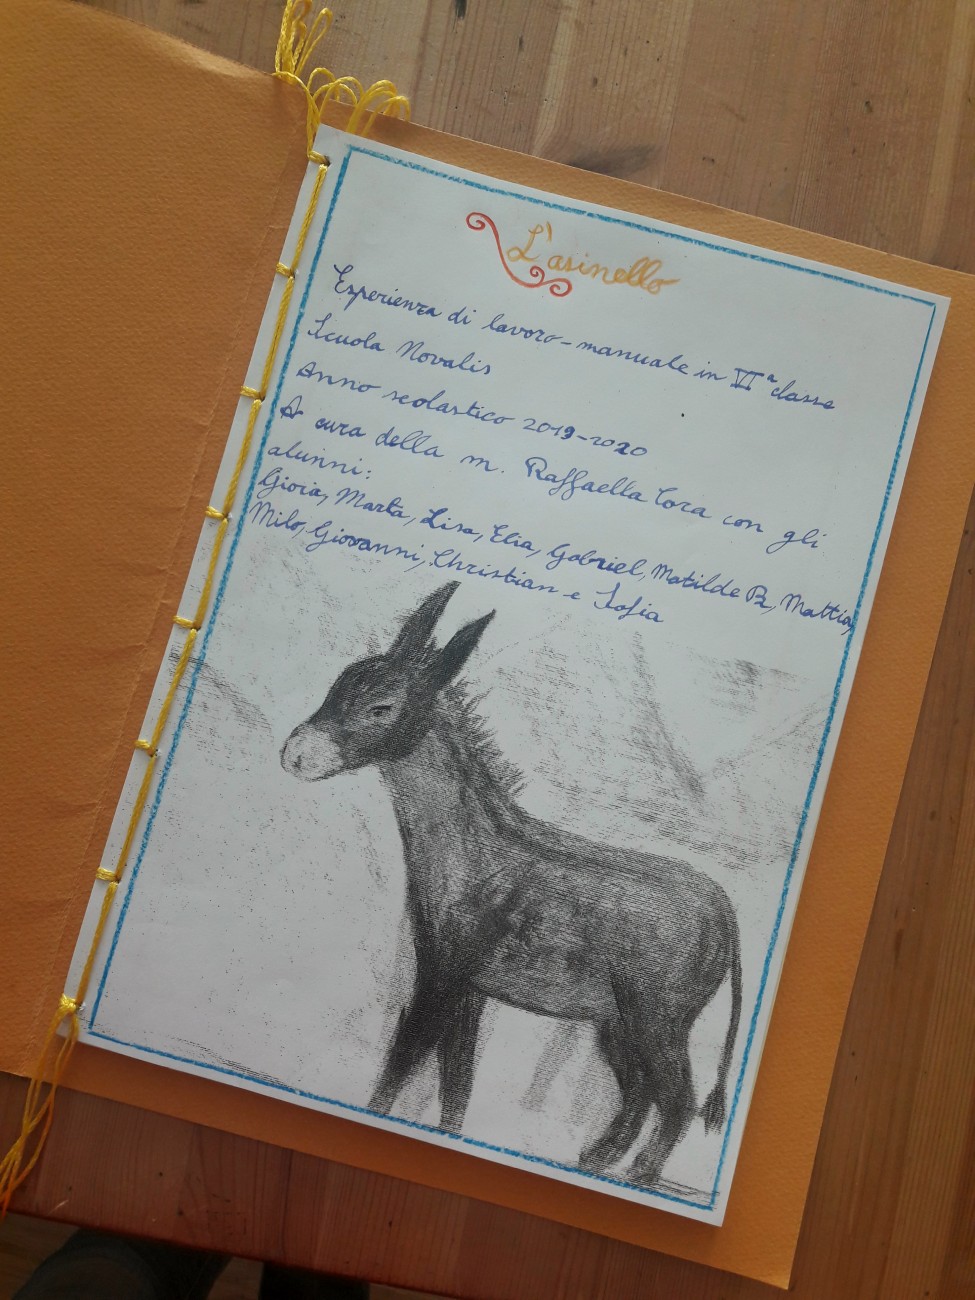 L'asinello
Esperienza di lavoro-manuale in VIª classe
Scuola Novalis
Anno scolastico 2019-2020
A cura della m. Raffaella Cora con gli
alunni:
Gioia, Marta, Lisa, Elia, Gabriel, Matilde B., Mattia,
Milo, Giovanni, Christian e Sofia